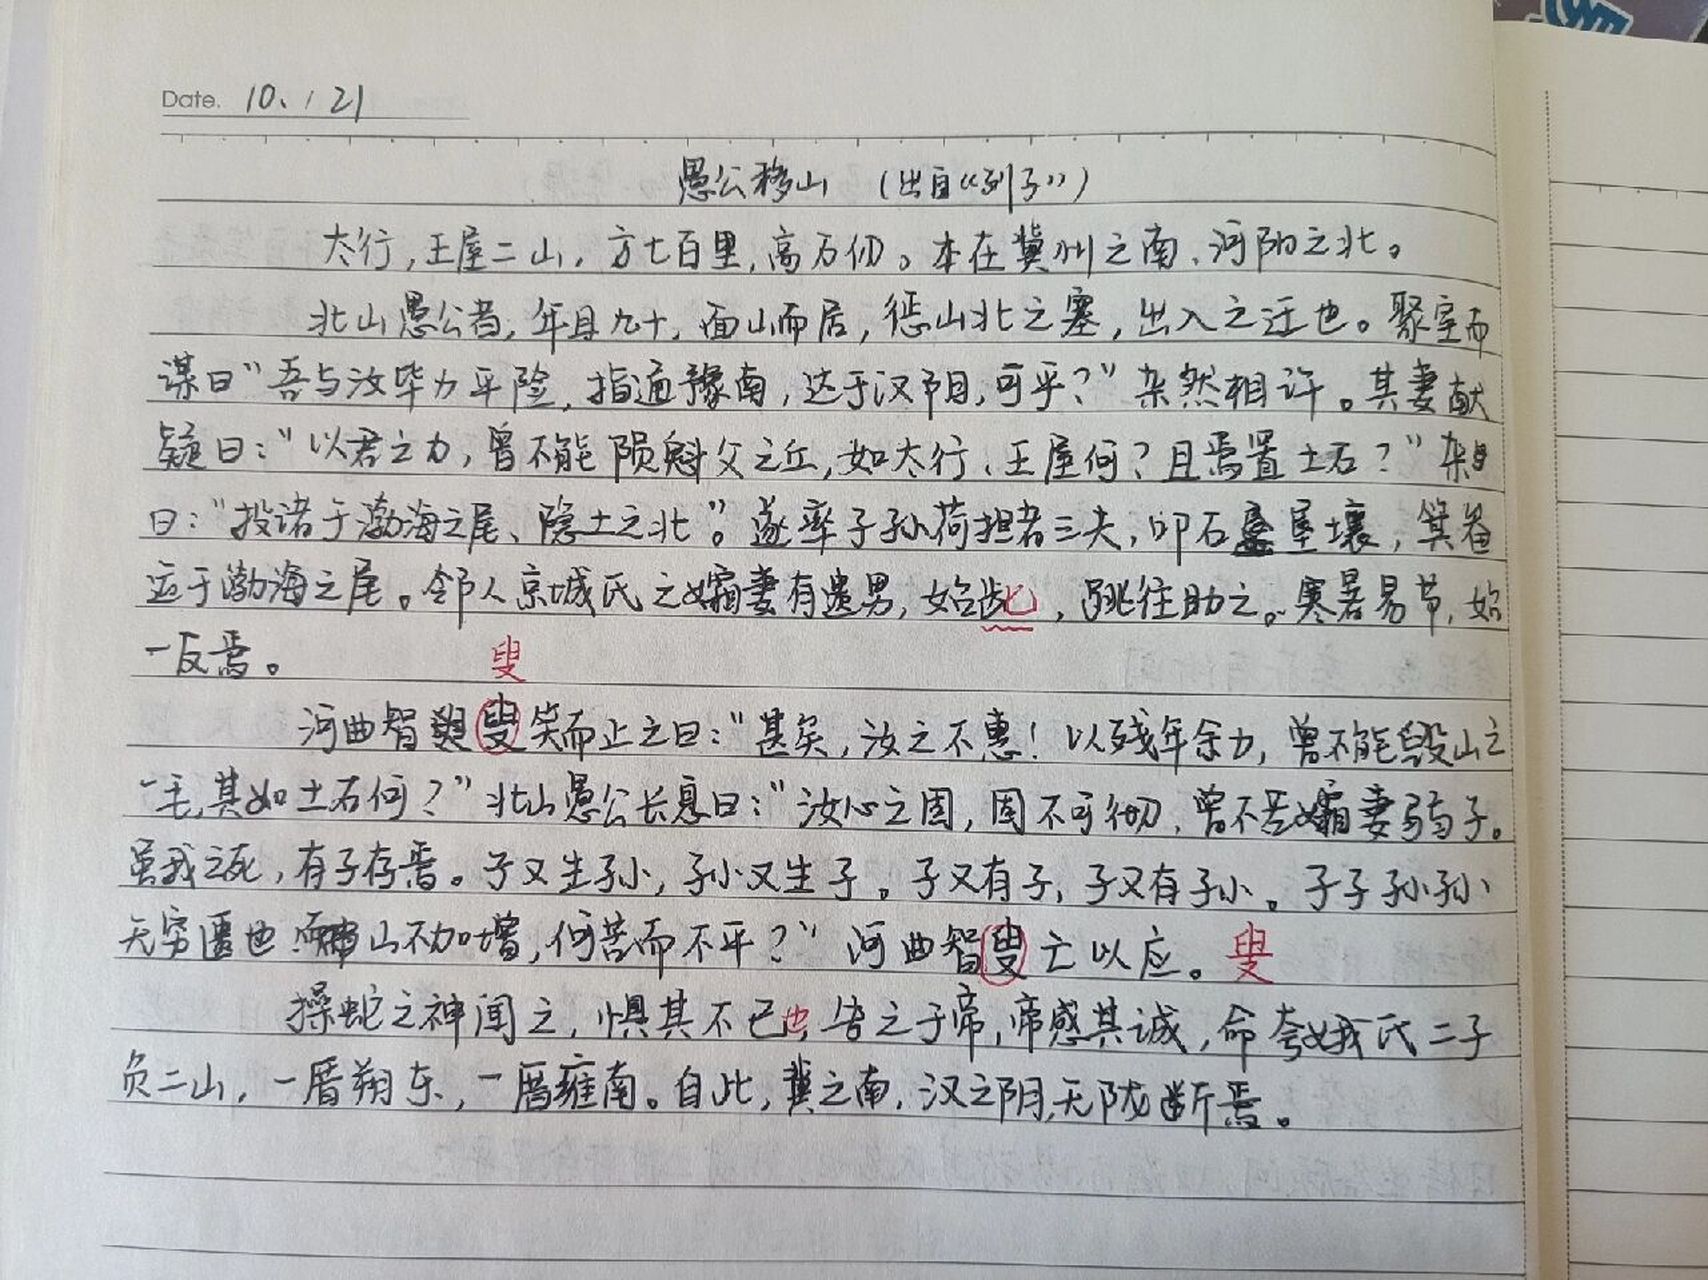 Date. 10. 21
愚公移山 （出自“列子”）
太行，王屋二山，方七百里，高万仞。本在冀州之南、河阳之北。
北山愚公者，年且九十，面山而居，惩山北之塞，出入之迂也。聚室而
谋曰“吾与汝毕力平险，指通豫南，达于汉阴，可乎？”杂然相许。其妻献
疑曰：“以君之力，曾不能陨魁父之丘，如太行、王屋何？且焉置土石？”杂
曰：“投诸于渤海之尾、隐土之北”。遂率子孙荷担者三夫，叩石垦壤，箕畚
运于渤海之尾。邻人京城氏之孀妻有遗男，始龀，跳往助之。寒暑易节，始
一反焉。
叟
河曲智叟笑而止之曰：“甚矣，汝之不惠！以残年余力，曾不能毁山之
一毛，其如土石何？”北山愚公长息曰：“汝心之固，固不可彻，曾不若孀妻弱子。
虽我之死，有子存焉。子又生孙，孙又生子。子又有子，子又有孙。子子孙孙
无穷匮也 而山不加增，何苦而不平？”河曲智叟亡以应。叟
操蛇之神闻之，惧其不已也，告之于帝，帝感其诚，命夸娥氏二子
负二山，一厝朔东，一厝雍南。自此，冀之南，汉之阴，无陇断焉。